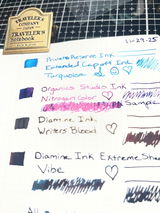 TRAVELER'S
COMPANY
TRAVELER'S
notebook
11-29-25
Private Reserve Ink
Extended Capert Ink
Turquoise
Organics Studio Ink
Nitrogen Color
Sample
Diamine Ink
Writers Blood
Diamine Ink Extreme Shee
Vibe